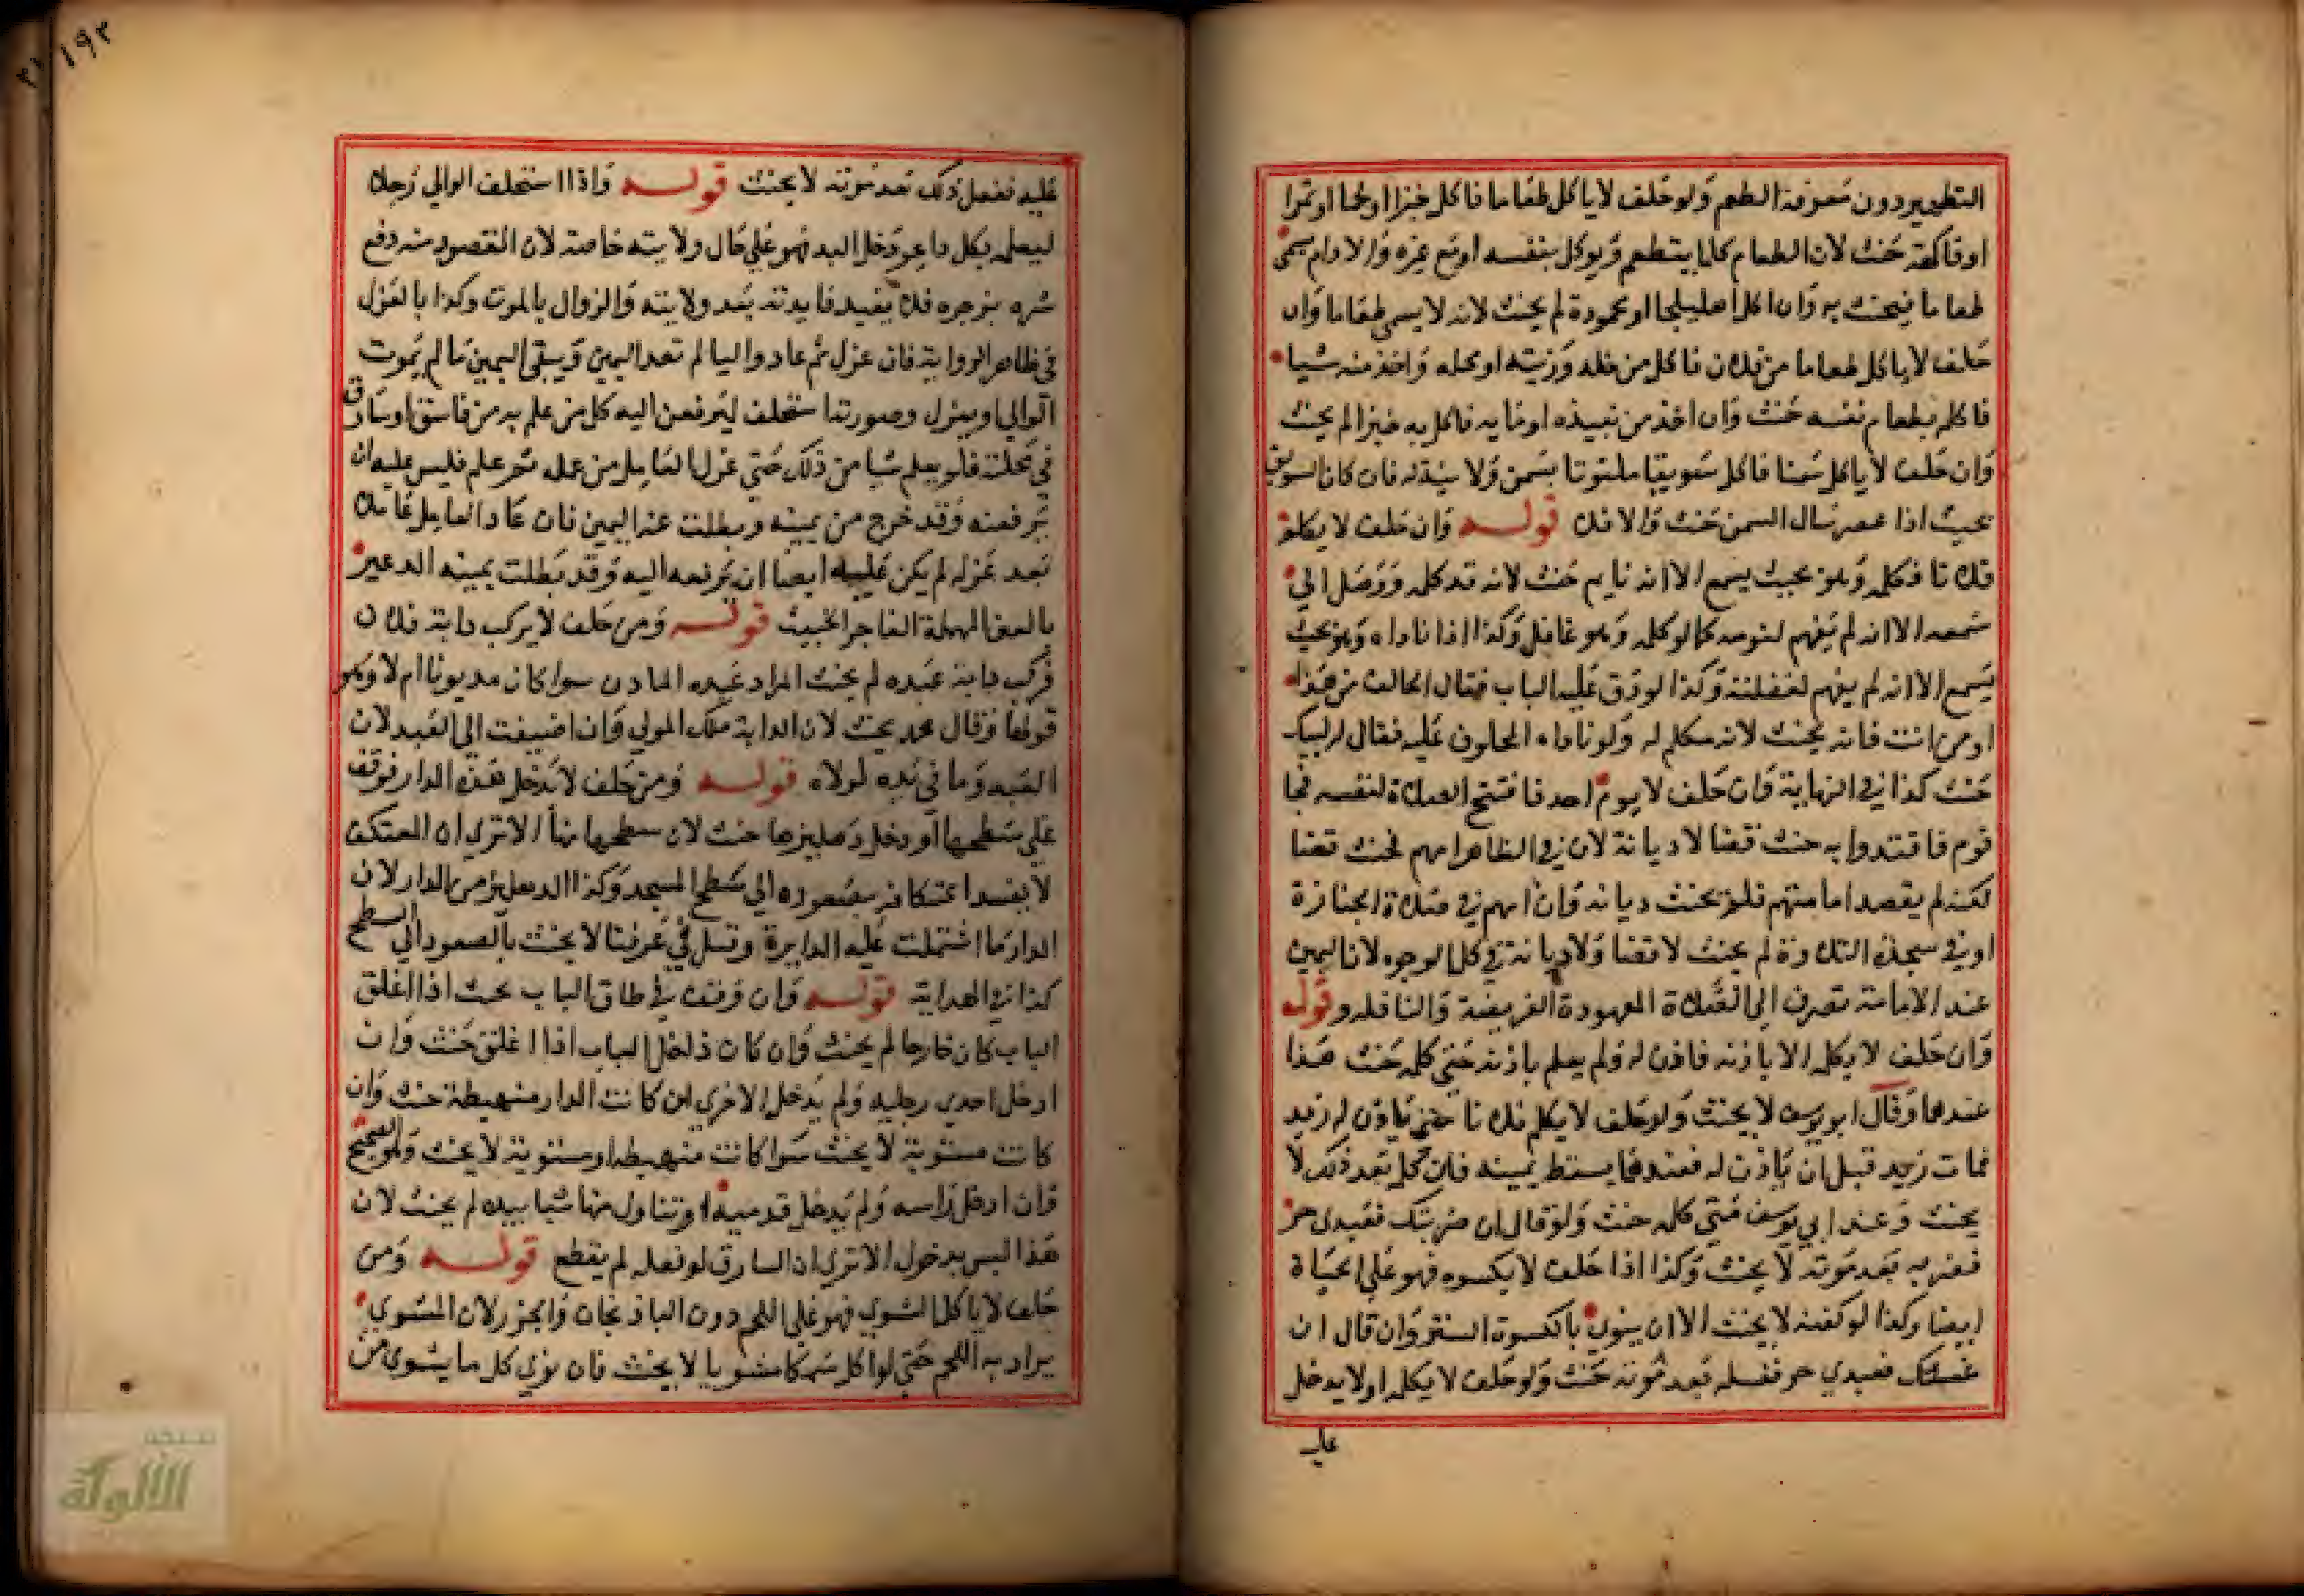 التطهير دون معرفة الطعم ولو حلف لا ياكل طعاما فاكل خبزا او لحما او تمرا
او فاكهة حنث لان الطعام كلما يتطعم ويوكل بنفسه او مع غيره والادام يسمى
طعاما فيحنث به وان اكل اهليلجا او محمودة لم يحنث لانه لا يسمى طعاما وان
حلف لا ياكل طعاما من فلان فاكل من خله وزيته او محله واخذ منه شيا
فاكله بطعام نفسه حنث وان اخذ من نبيذه او مايه فاكل به خبزا لم يحنث
وان حلف لا ياكل سمنا فاكل سويقا ملتوتا بسمن ولا نية له فان كان السويق
بحيث اذا عصر سال السمن حنث والا فلا قوله وان حلف لا يكلم
فلانا فكلمه وهو بحيث يسمع الا انه نايم حنث لانه قد كلمه ووصل الي
سمعه الا انه لم يفهم لنومه كما لو كلمه وهو غافل وكذا اذا ناداه وهو بحيث
يسمع الا انه لم يفهم لغفلته وكذا لو دق عليه الباب فقال الحالف من هذا
او من انت فانه يحنث لانه مكلم له ولو ناداه المحلوف عليه فقال لبيك
حنث كذا في النهاية وان حلف لا يوم احد فافتتح الصلاة لنفسه فجا
قوم فاقتدوا به حنث قضا لا ديانة لان في الظاهر امهم فحنث قضا
لكنه لم يقصد امامتهم فلم يحنث ديانه وان امهم في صلاة الجنازة
او في سجدة التلاوة لم يحنث لا قضا ولا ديانة في كل الوجوه لان اليمين
عند الامامة تصرف الى الصلاة المعهودة الفريضة والنافله قوله
وان حلف لا يكلمه الا باذنه فاذن له ولم يعلم باذنه حتى كلمه حنث هذا
عندهما وقال ابو يوسف لا يحنث ولو حلف لا يكلم فلانا حتى ياذن له زيد
فمات زيد قبل ان ياذن له فعندهما يسقط يمينه فان كلمه بعد ذلك لا
يحنث وعند ابي يوسف متى كلمه حنث ولو قال ان ضربتك فعبدي حر
فضربه بعد موته لا يحنث وكذا اذا حلف لا يكسوه فهو على الحياة
ايضا وكذا لو كفنه لا يحنث الا ان ينوي بالكسوة الستر وان قال ان
غسلتك فعبدي حر فغسله بعد موته حنث ولو حلف لا يكلمه او لا يدخل
عليـ
١٩٢
عليه ففعل ذلك بعد موته لا يحنث قوله واذا استحلف الوالي رجلا
ليعلمه بكل داعر دخل البلد فهو على حال ولايته خاصة لان المقصود منه دفع
شره بزجره فلا يفيد فايدته بعد ولايته والزوال بالموت وكذا بالعزل
في ظاهر الرواية فان عزل ثم عاد واليا لم تعد اليمين ويبقى اليمين ما لم يموت
الوالي او يعزل وصورتها استحلف ليرفعن اليه كل من علم به من فاسق او سارق
في محلته فلم يعلم شيا من ذلك حتى عزل العامل من عمله ثم علم فليس عليه ان
يرفعنه وقد خرج من يمينه وبطلت عنه اليمين فان عاد العامل عاملا
بعد عزله لم يكن عليه ايضا ان يرفعه اليه وقد بطلت يمينه الدعير
بالعين المهملة الفاجر الخبيث قوله ومن حلف لا يركب دابة فلان
فركب دابة عبده لم يحنث المراد عبده الماذون سوا كان مديونا ام لا وهو
قولهما وقال محمد يحنث لان الدابة ملك المولي وان اضيفت الى العبد لان
العبد وما في يده لمولاه قوله ومن حلف لا يدخل هذه الدار فوقف
على سطحها او دخل دهليزها حنث لان سطحها منها الا تري ان المعتكف
لا يفسد اعتكافه بصعوده الي سطح المسجد وكذا الدهليز من الدار لان
الدار ما اشتملت عليه الدايرة وقيل في عرفنا لا يحنث بالصعود الي السطح
كذا في الهداية قوله وان وقف في طاق الباب بحيث اذا اغلق
الباب كان خارجا لم يحنث وان كان داخل الباب اذا اغلق حنث وان
ادخل احدي رجليه ولم يدخل الاخري ان كانت الدار منهبطة حنث وان
كانت مستوية لا يحنث سوا كانت منهبطة او مستوية لا يحنث وهو الصحيح
وان ادخل راسه ولم يدخل قدميه او تناول منها شيا بيده لم يحنث لان
هذا ليس بدخول الا تري ان السارق لو فعله لم يقطع قوله ومن
حلف لا ياكل الشوي فهو على اللحم دون الباذنجان والجزر لان المشوي
يراد به اللحم حتى لو اكل سمكا مشويا لا يحنث فان نوي كل ما يشوى من
شبكة
الألوكة